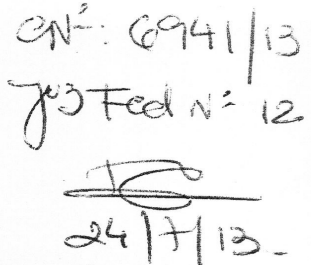 CNº: 6941/13
Juz Fed Nº 12
24/7/13.